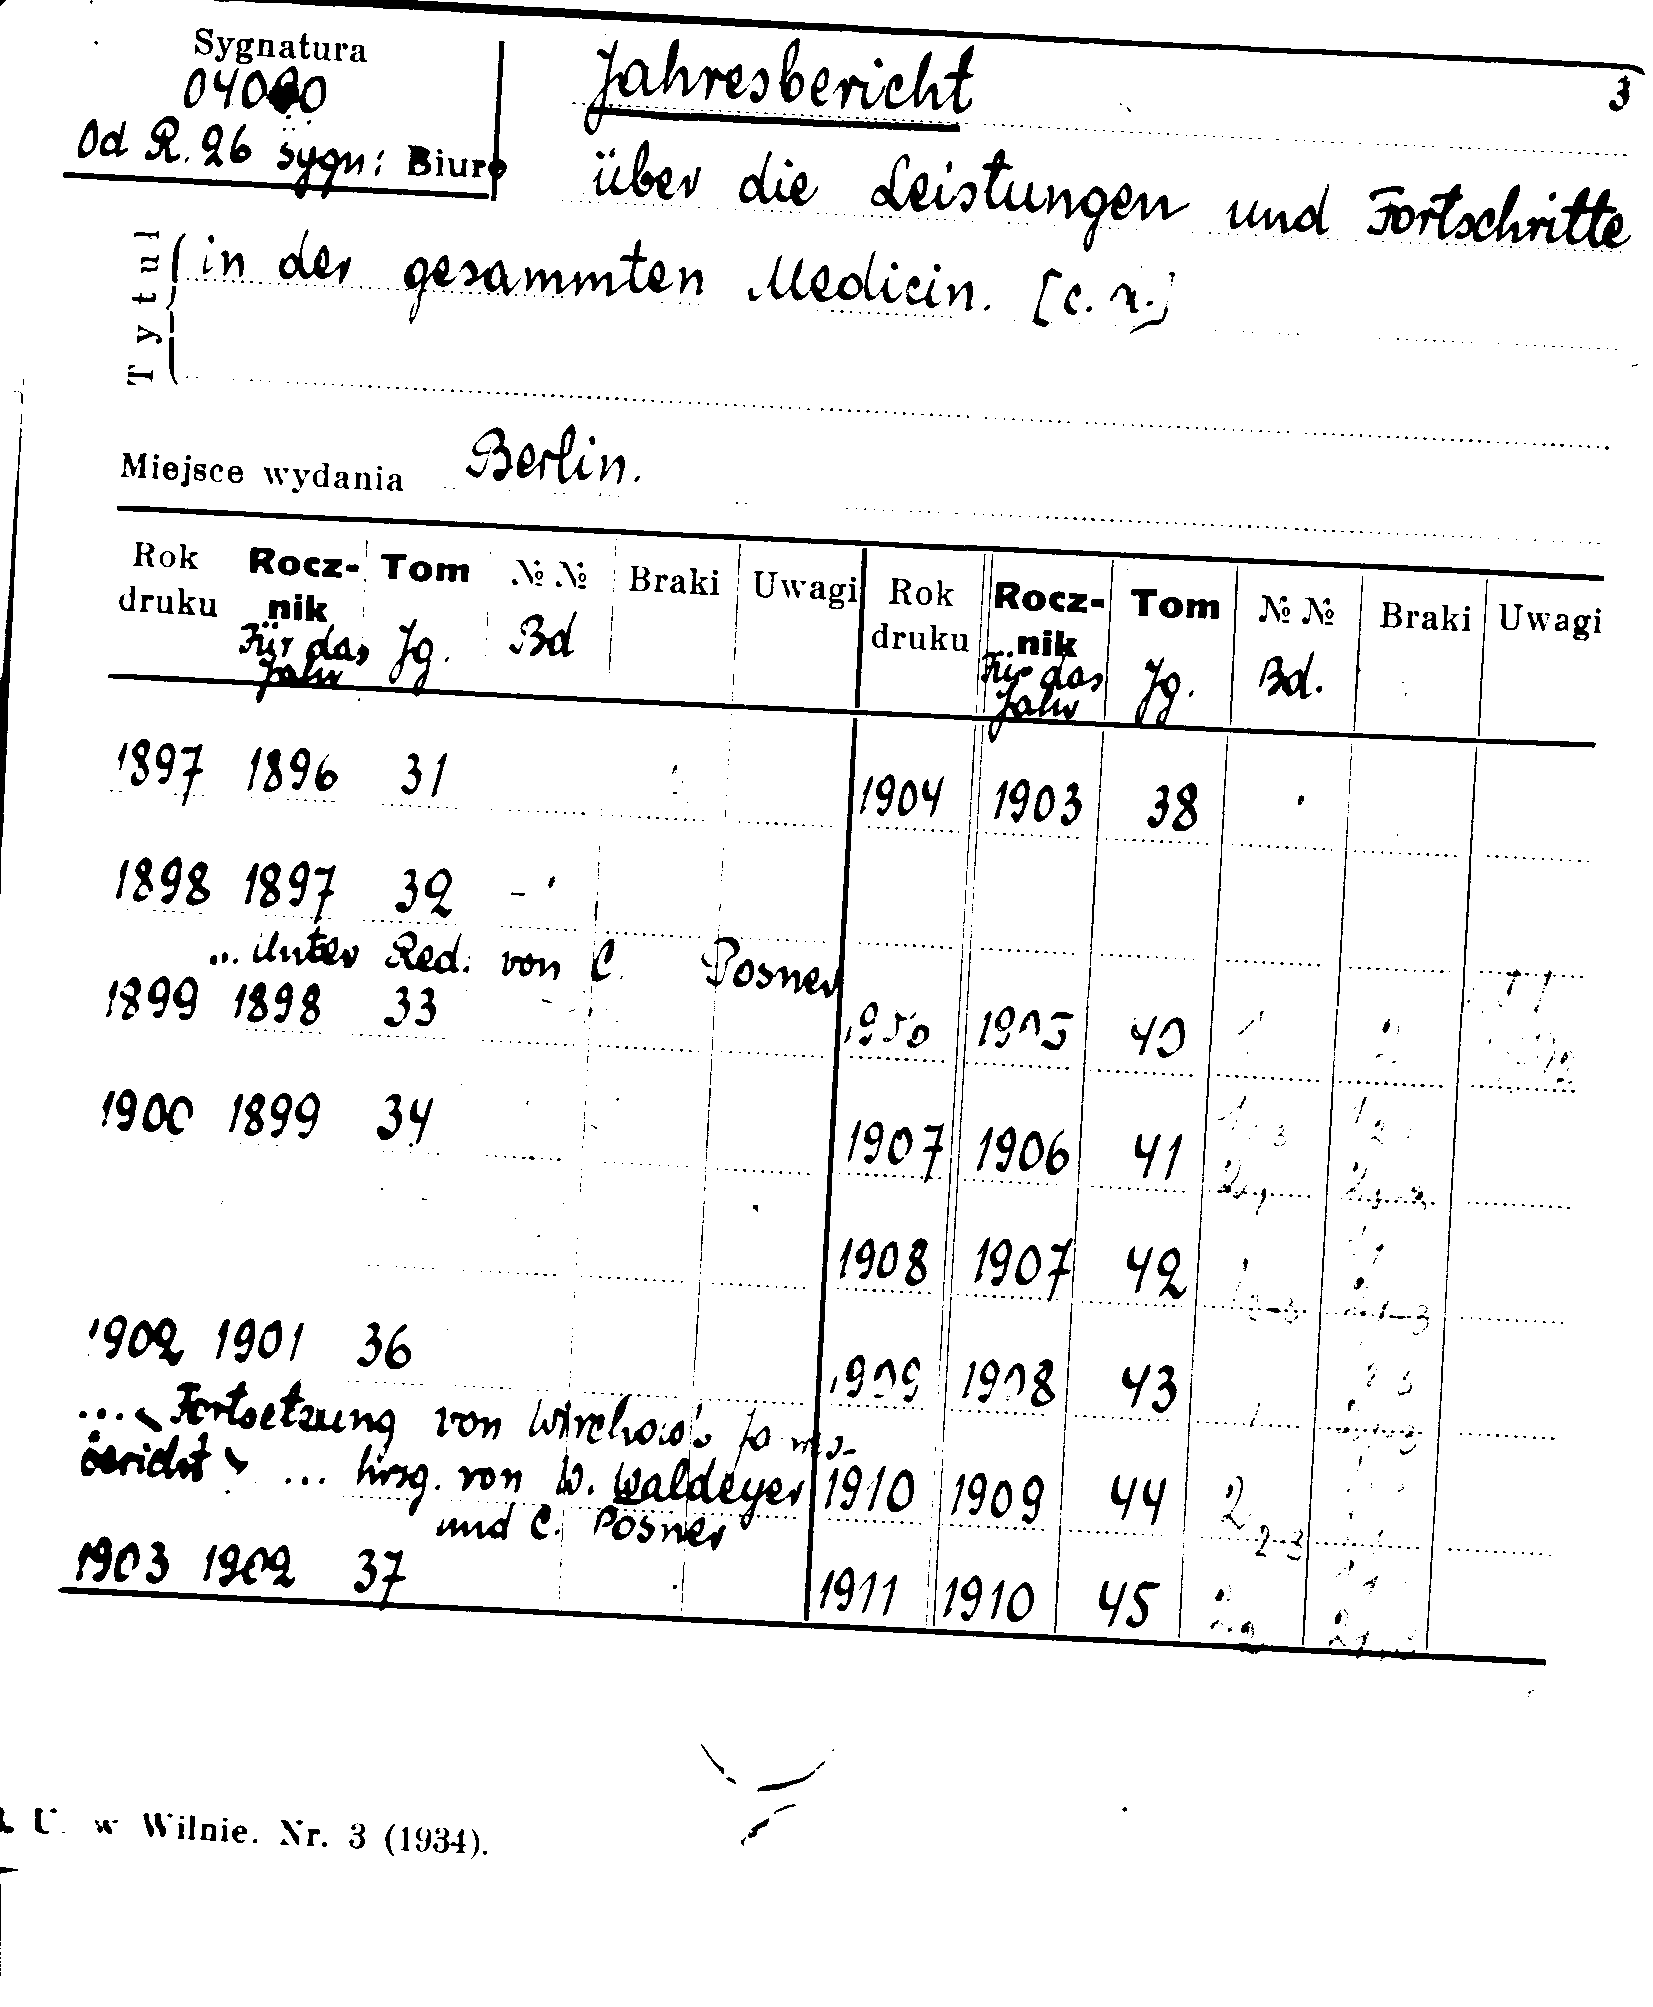 Sygnatura
3
Od R. 26 sygn: Biuro
Jahresbericht
über die Leistungen und Fortschritte
Tytuł
in der gesammten Medicin. [c. d.]
Miejsce wydania Berlin.
Rok druku Rocznik Für das Jahr Tom Jg. № № Bd Braki Uwagi
1897 1896 31
1898 1897 32 -
... Unter Red. von C. Posner
1899 1898 33
1900 1899 34
1902 1901 36
... Fortsetzung von Virchow's
bericht ... hrsg. von W. Waldeyer
und C. Posner
1903 1902 37
Rok druku Rocznik Für das Jahr Tom Jg. № № Bd. Braki Uwagi
1904 1903 38
1905 40
1907 1906 41
1908 1907 42
1909 1908 43
1910 1909 44 2 2-3
1911 1910 45
U. w Wilnie. Nr. 3 (1934).